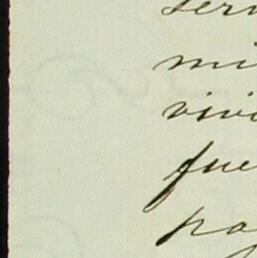 serv
mi
vivi
fue
pa